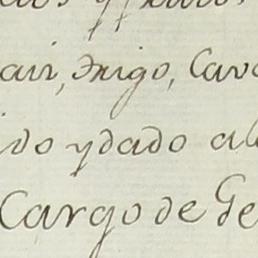 air, Trigo, Cava
ido y dado al
Cargo de Ge